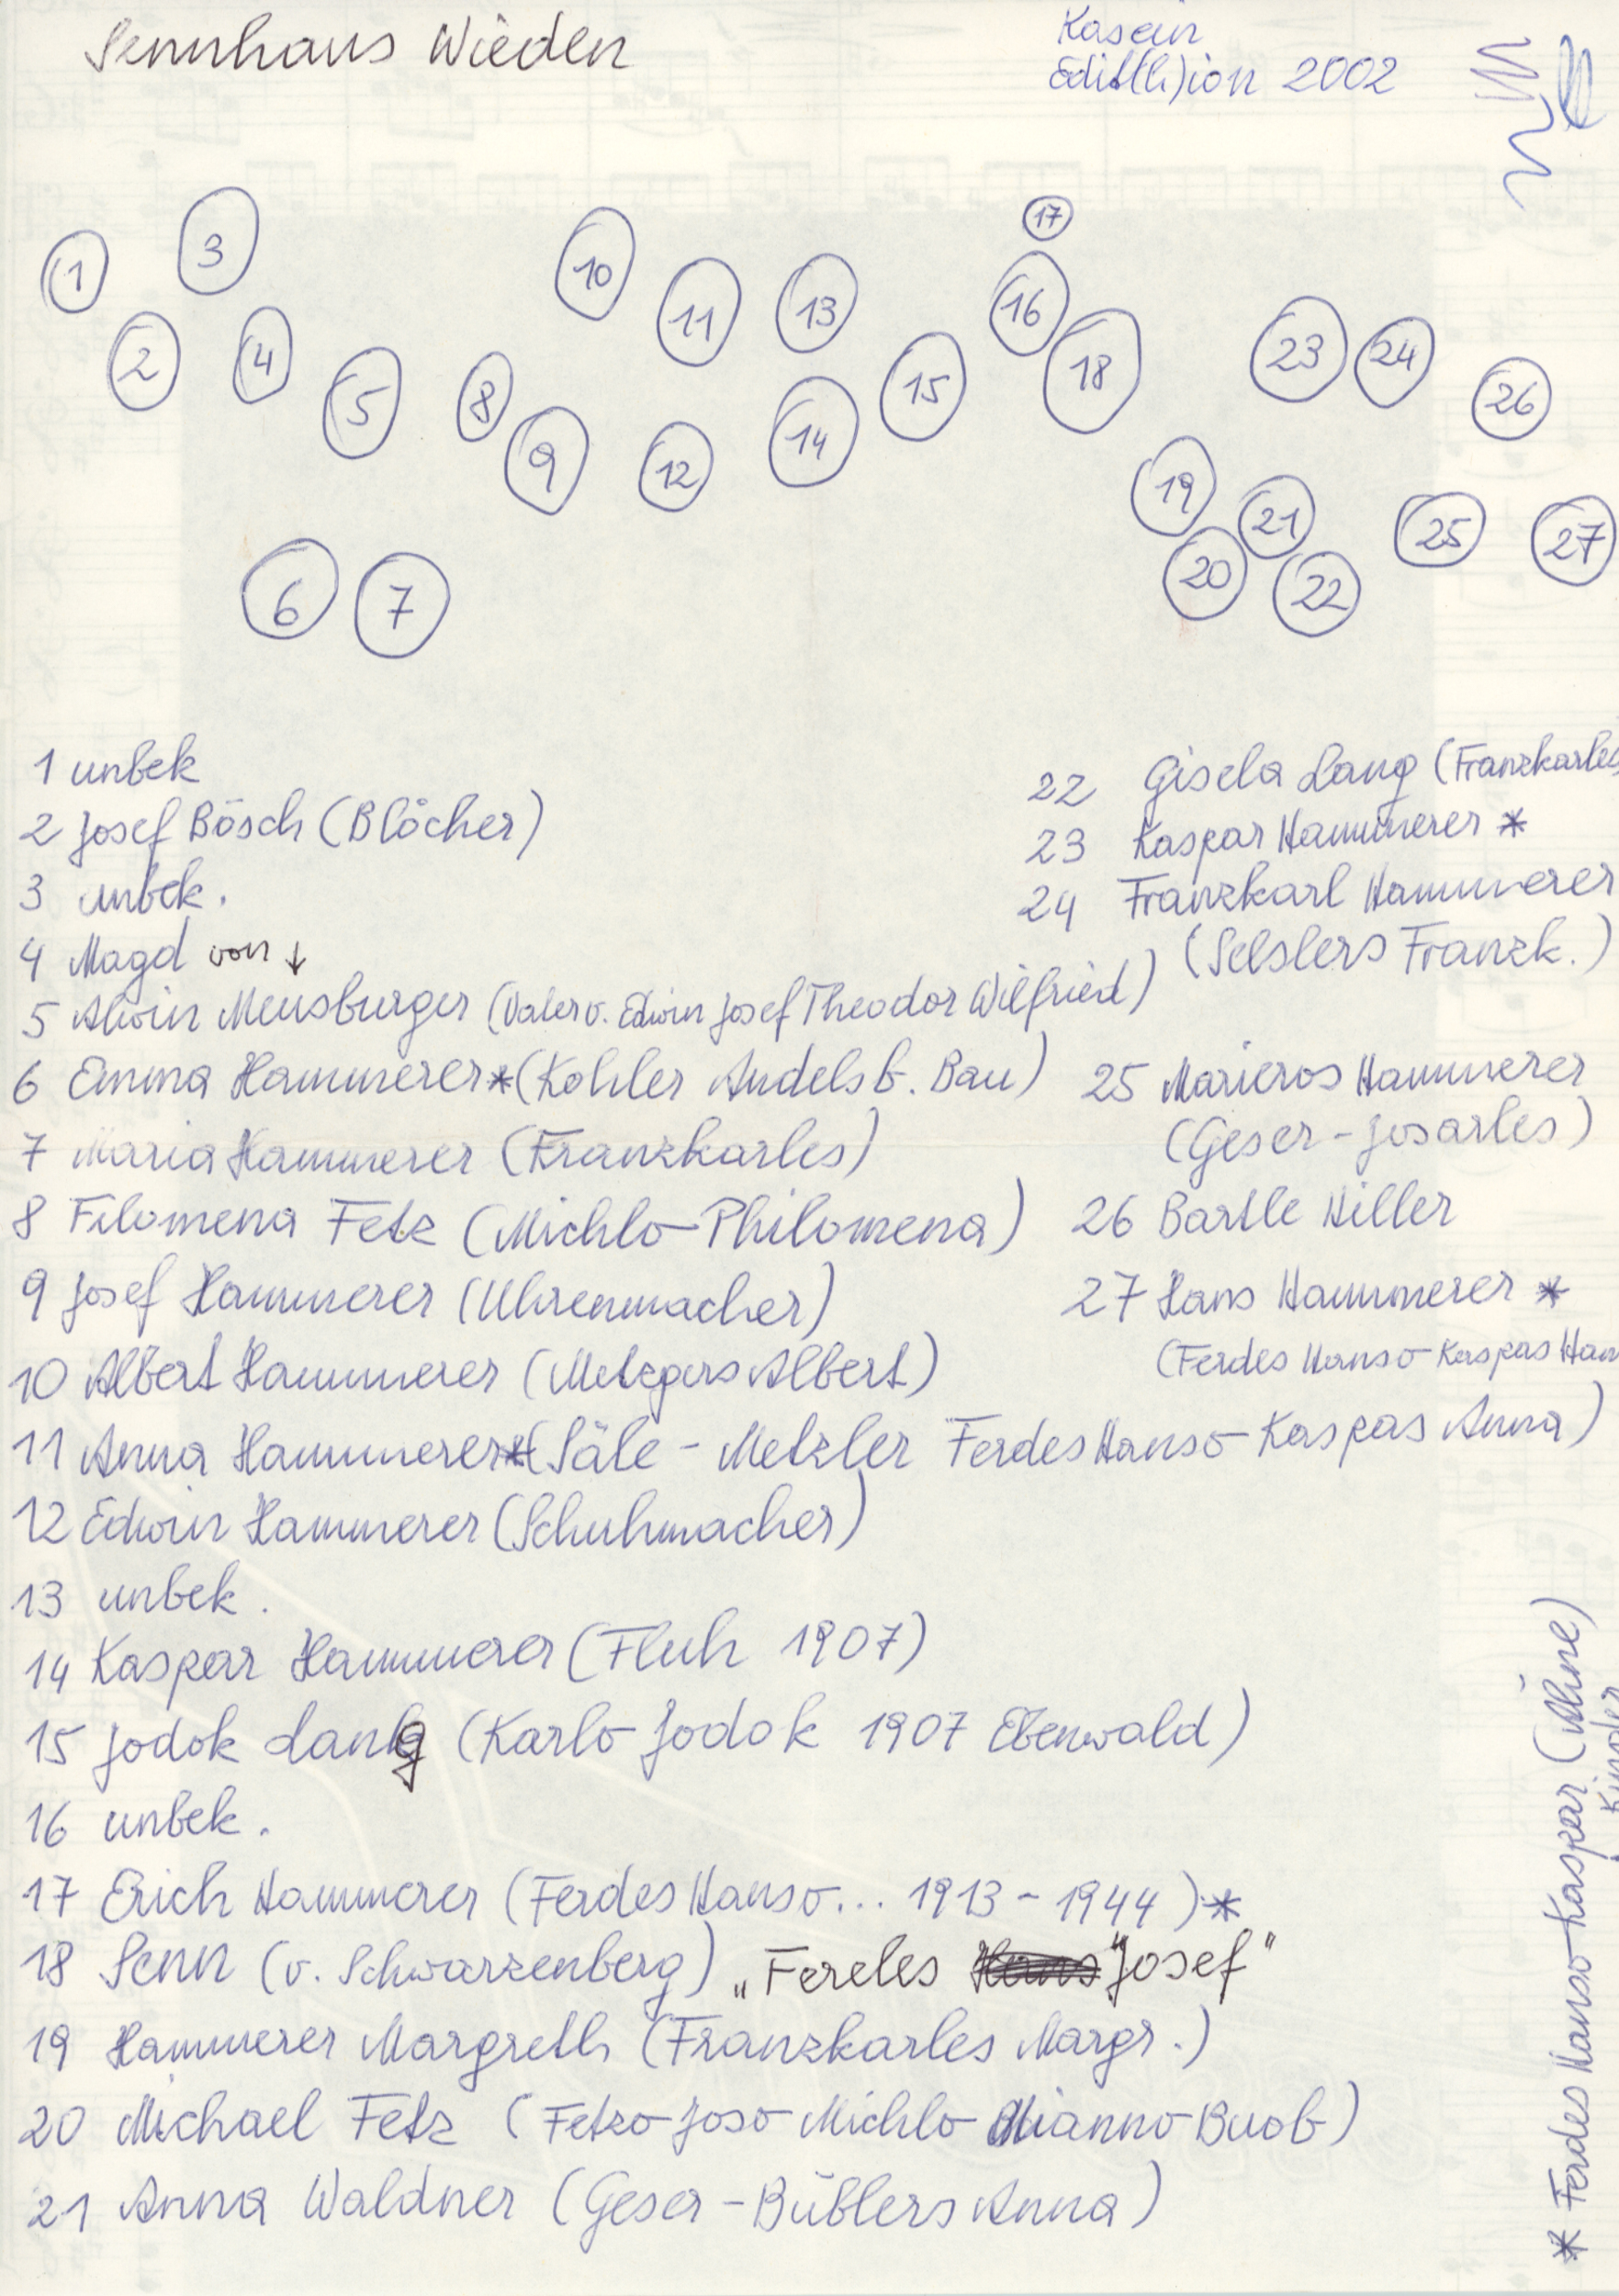 Sennhaus Wieden
Kasein
Edit(h)ion 2002
1
3
10
17
11
13
16
2
4
5
8
15
18
23
24
26
9
12
14
19
21
25
27
6
7
20
22
1 unbek
2 Josef Bösch (Blöcher)
3 unbek.
4 Magd von ↓
5 Alwin Meusburger (Vater v. Edwin Josef Theodor Wilfried)
6 Emma Hammerer * (Kohler Andelsb. Bau)
7 Maria Hammerer (Franzkarles)
8 Filomena Fetz (Michlo-Philomena)
9 Josef Hammerer (Uhrenmacher)
10 Albert Hammerer (Metzgers Albert)
11 Anna Hammerer * (Säle - Metzler Ferdes Hanso-Kaspas Anna)
12 Edwin Hammerer (Schuhmacher)
13 unbek.
14 Kaspar Hammerer (Fluh 1907)
15 Jodok Lang (Karlo Jodok 1907 Ebenwald)
16 unbek.
17 Erich Hammerer (Ferdes Hanso... 1913 - 1944) *
18 Senn (v. Schwarzenberg) „Fereles Hans "Josef"
19 Hammerer Margreth (Franzkarles Margr.)
20 Michael Fetz (Fetzo-Joso-Michlo-Mianno-Buob)
21 Anna Waldner (Geser-Büblers Anna)
22 Gisela Lang (Franzkarles
23 Kaspar Hammerer *
24 Franzkarl Hammerer
(Selslers Franzk.)
25 Marieros Hammerer
(Geser-Josarles)
26 Bartle Hiller
27 Hans Hammerer *
(Ferdes Hanso-Kaspas Han
* Ferdes Hanso-Kaspar (Ähne)
Kinder